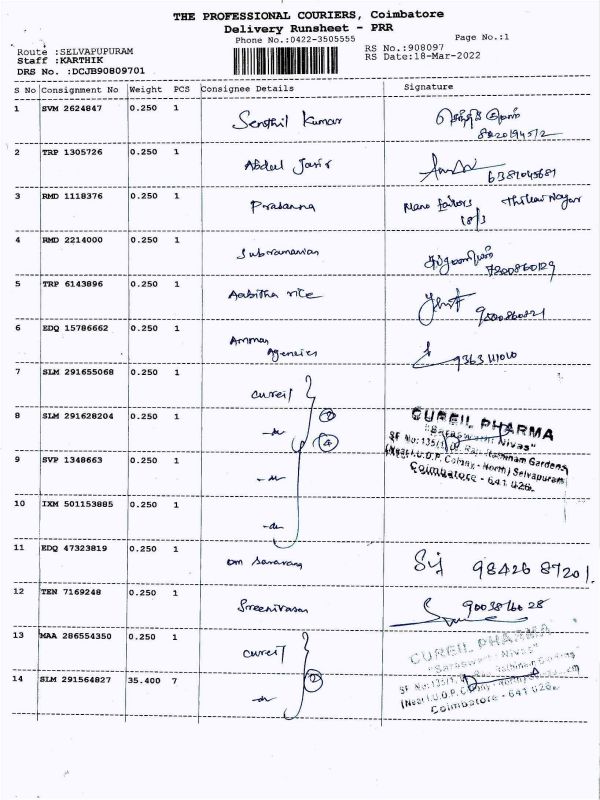 THE PROFESSIONAL COURIERS, Coimbatore
Delivery Runsheet - PRR
Phone No.:0422-3505555
Page No.:1
Route :SELVAPUPURAM
Staff :KARTHIK
DRS No. :DCJB90809701
RS No.:908097
RS Date:18-Mar-2022
S No Consignment No Weight PCS Consignee Details Signature
1 SVM 2624847 0.250 1 Senthil Kumar
2 TRP 1305726 0.250 1 Abdul
6381045681
3 RMD 1118376 0.250 1 Prasanna
18/3
4 RMD 2214000 0.250 1 Subramanian
5 TRP 6143896 0.250 1 Aabitha rice
6 EDQ 15786662 0.250 1 Amman
Agencies
9363111010
7 SLM 291655068 0.250 1 cureil
8 SLM 291628204 0.250 1 -do-
4
CUREIL PHARMA
"Saraswathi Nivas"
SF No: 135/1, Rathinam Gardens
(Near I.U.D.P. Colony - North) Selvapuram
Coimbatore - 641 026.
9 SVP 1348663 0.250 1 -do-
10 IXM 501153885 0.250 1 -do-
11 EDQ 47323819 0.250 1 om Saravana
98426 87201.
12 TEN 7169248 0.250 1 Sreenivasan
13 MAA 286554350 0.250 1 cureil
14 SLM 291564827 35.400 7 -do-
2
CUREIL PHARMA
"Saraswathi Nivas"
SF No: 135/1, Rathinam Gardens
Coimbatore - 641 026.